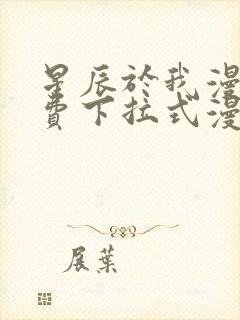 星辰於我漫
費下拉式漫
展葉